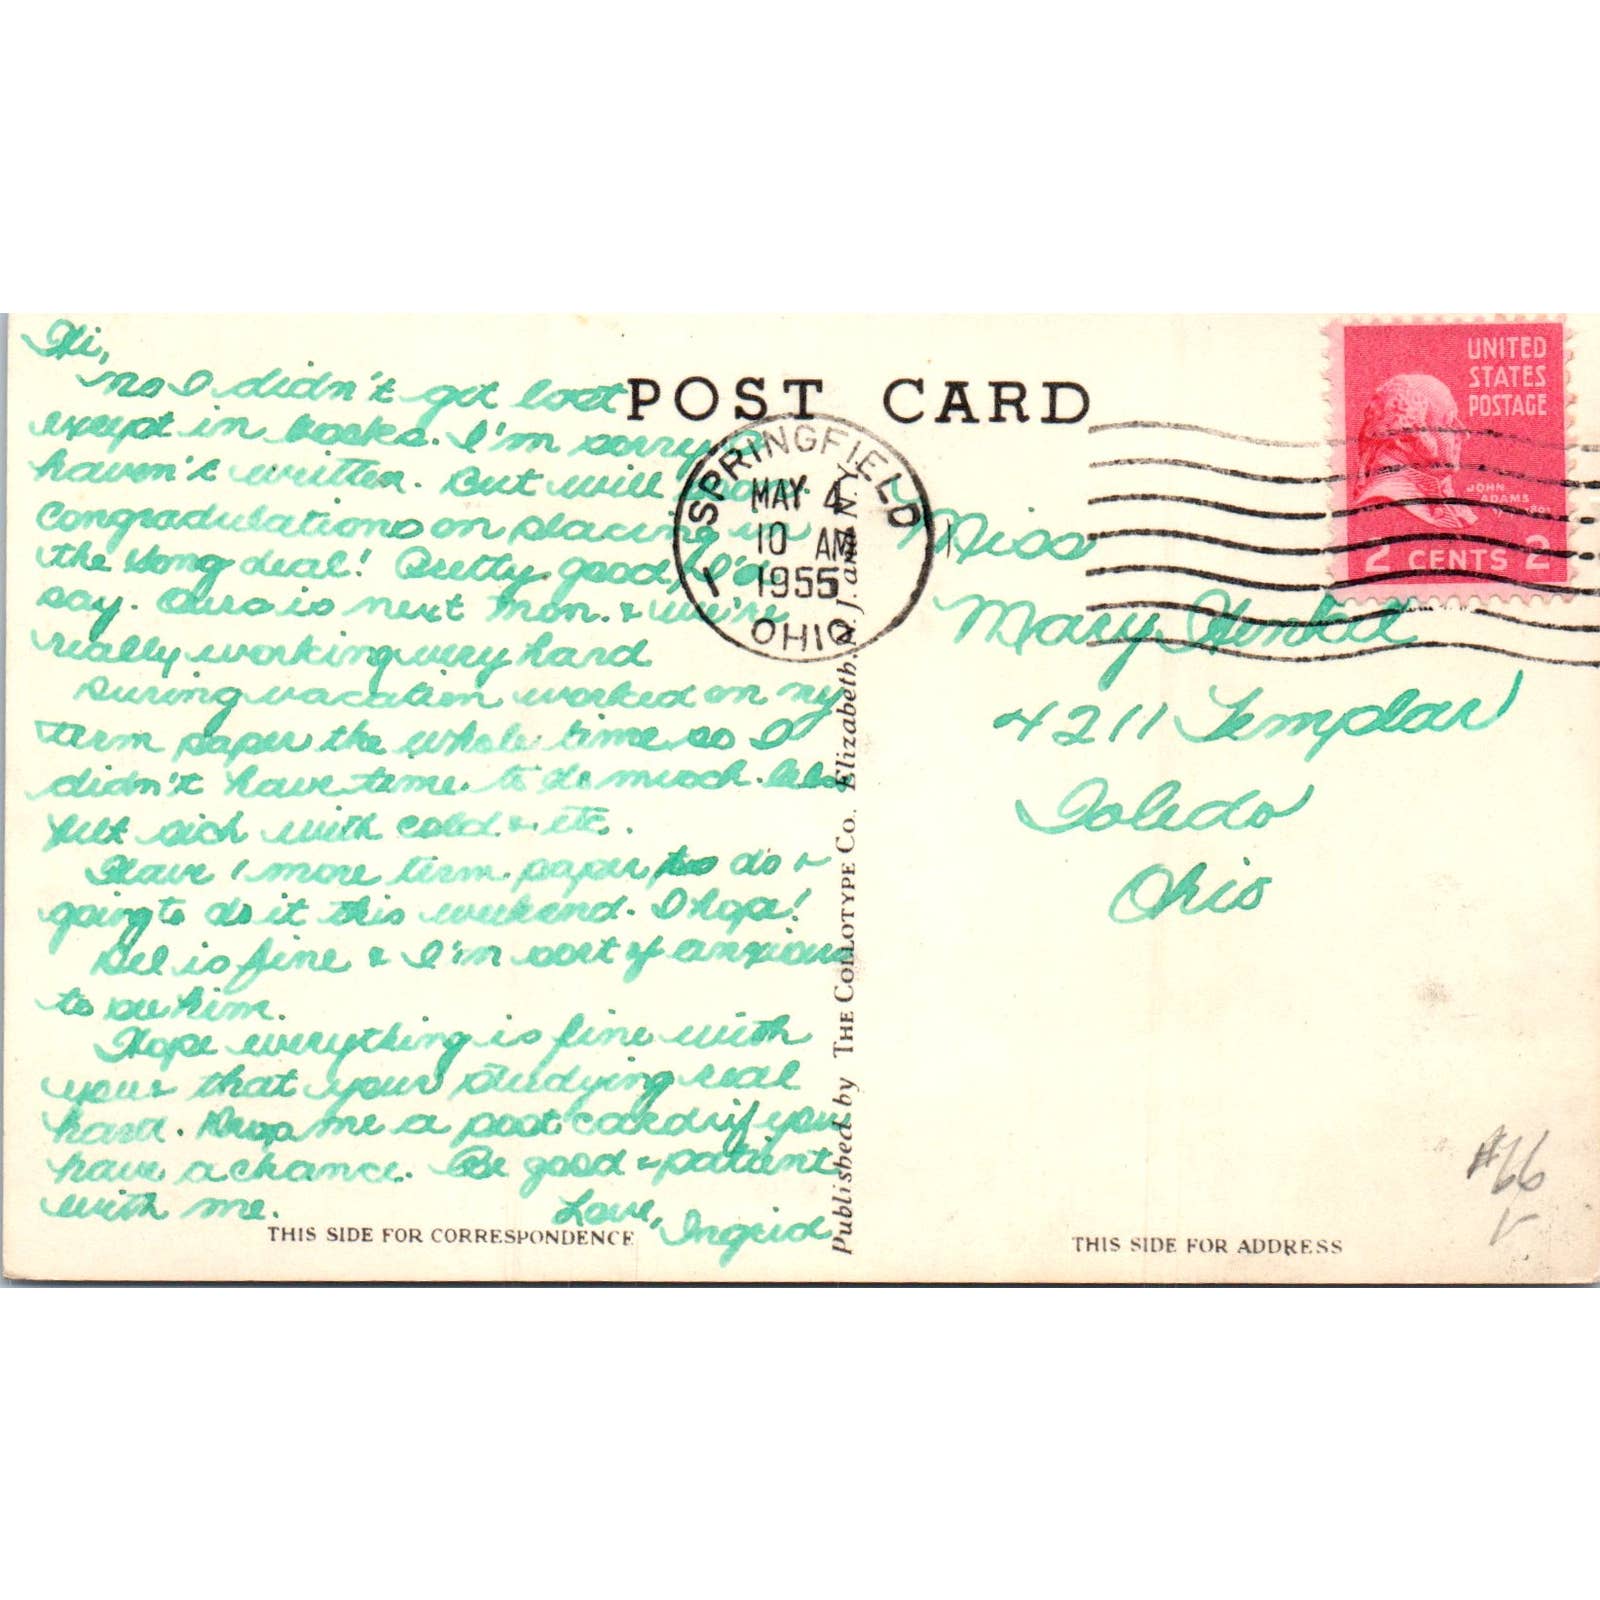 Hi,
No I didn't get lost
except in books. I'm sorry I
haven't written. But will
Congradulations on placing in
the song deal! Pretty good, I'd
say. Ours is next Mon. & we're
really working very hard
During vacation worked on my
term paper the whole time so I
didn't have time to do much.
sick with cold & etc.
Have 1 more term paper to do &
going to do it this weekend. I hope!
Del is fine & I'm sort of anxious
to see him.
Hope everything is fine with
you & that your studying real
hard. Drop me a post card if you
have a chance. Be good & patient
with me.
Love, Ingrid
THIS SIDE FOR CORRESPONDENCE
POST CARD
SPRINGFIELD
MAY 4
10 AM
1955
OHIO
1
Published by THE COLLOTYPE CO. Elizabeth, N. J. and N. Y.
UNITED
STATES
POSTAGE
JOHN
ADAMS
2 CENTS 2
Miss
Mary Henkel
4211 Templar
Toledo
Ohio
#66
THIS SIDE FOR ADDRESS